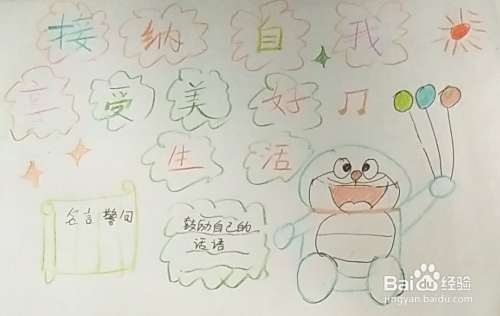 接纳自我
享受美好
生活
名言警句
鼓励自己的
话语
Baidu经验
jingyan.baidu.com